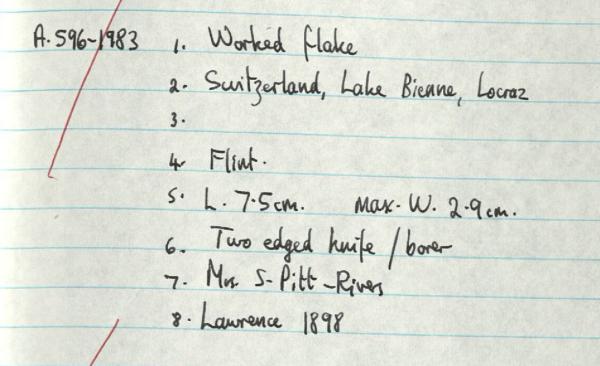 A.596-1983 1. Worked flake
2. Switzerland, Lake Bienne, Locraz
3.
4. Flint.
5. L. 7.5cm. Max. W. 2.9cm.
6. Two edged knife / borer
7. Mrs. S. Pitt-Rivers
8. Lawrence 1898